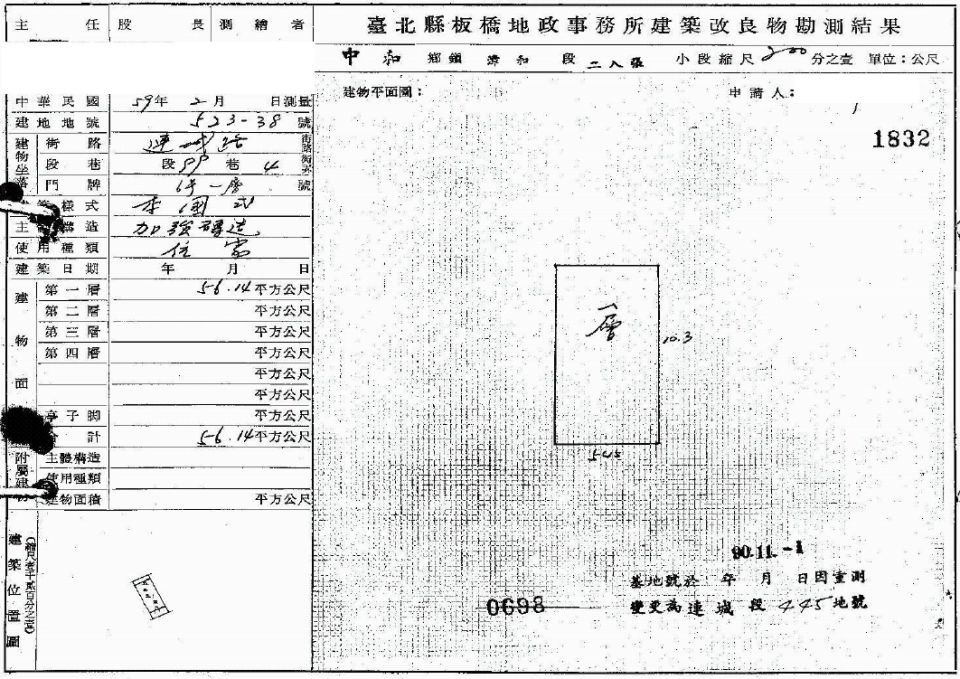 主任 股長 測繪者
臺北縣板橋地政事務所建築改良物勘測結果
中和 鄉鎮 漳和 段 二八張 小段縮尺 200 分之壹 單位：公尺
中華民國 59年 2月 日測量
建物平面圖：
申請人：
建地地號 523-38 號
1832
建物坐落 街路 連城路 街路
段巷 段 89 巷 4
門牌 一層 號
樣式 本國式
主 構造 加強磚造
使用種類 住家
建築日期 年 月 日
建物面
第一層 56.14 平方公尺
第二層 平方公尺
第三層 平方公尺
第四層 平方公尺
平方公尺
平方公尺
亭子腳 平方公尺
計 56.14 平方公尺
附屬建物
主體構造
使用種類
建物面積 平方公尺
一層
10.3
5.45
建築位置圖
90.11.-1
基地號於 年 月 日因重測
變更為連城段 445 地號
0698